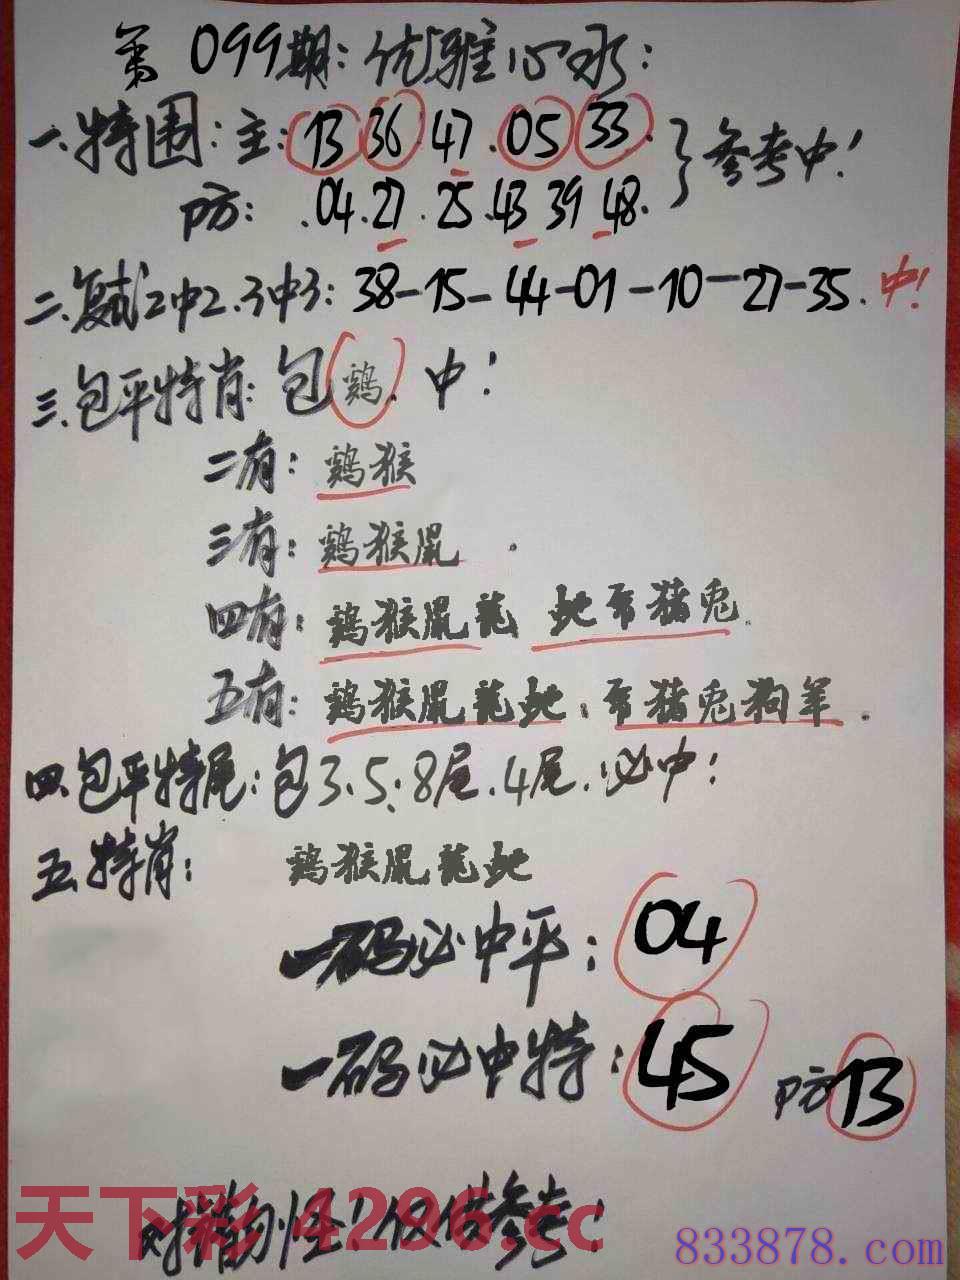 第099期:优雅心水:
一.特围:主:13 36 47.05 33.}参考中!
防:.04.27.25.43 39 48.
二.复试2中2.3中3:38-15-44-01-10-27-35.中!
三.包平特肖:包鷄.中!
二有:鷄猴
三有:鷄猴鼠.
四有:鷄猴鼠龍 蛇马猪兔.
五有:鷄猴鼠龍蛇:马猪兔狗羊.
四.包平特尾:包3.5:8尾.4尾.必中!
五.特肖:鷄猴鼠龍蛇
一码必中平:04
一码必中特:45 防13
天下彩4296.cc
错勿怪!仅供参考!
833878.com